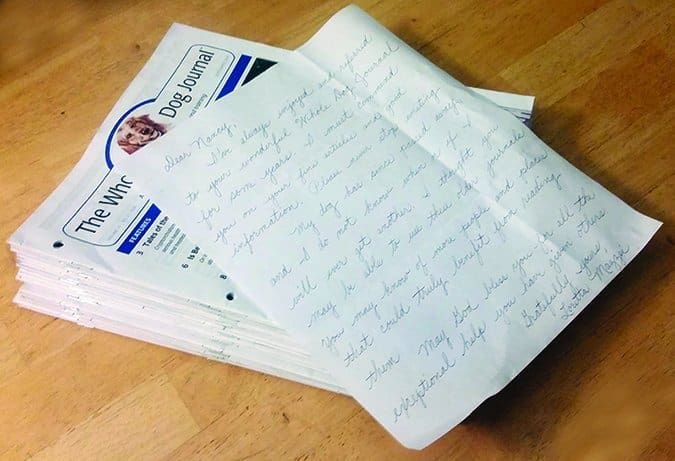 The Who
Dog Journal™
FEATURES
3 Tales of the
6 Is Be
8
Dear Nancy,
I've always enjoyed and referred
to your wonderful Whole Dog Journal
for some years. I must commend
you on your fine articles and good
information. Please never stop writing
My dog has since passed away
and I do not know when or if I
will ever get another. I thought you
may be able to use these journals
You may know of more people and places
that could truly benefit from reading
them. May God bless you for all the
exceptional help you have given others
Gratefully yours,
Loretta